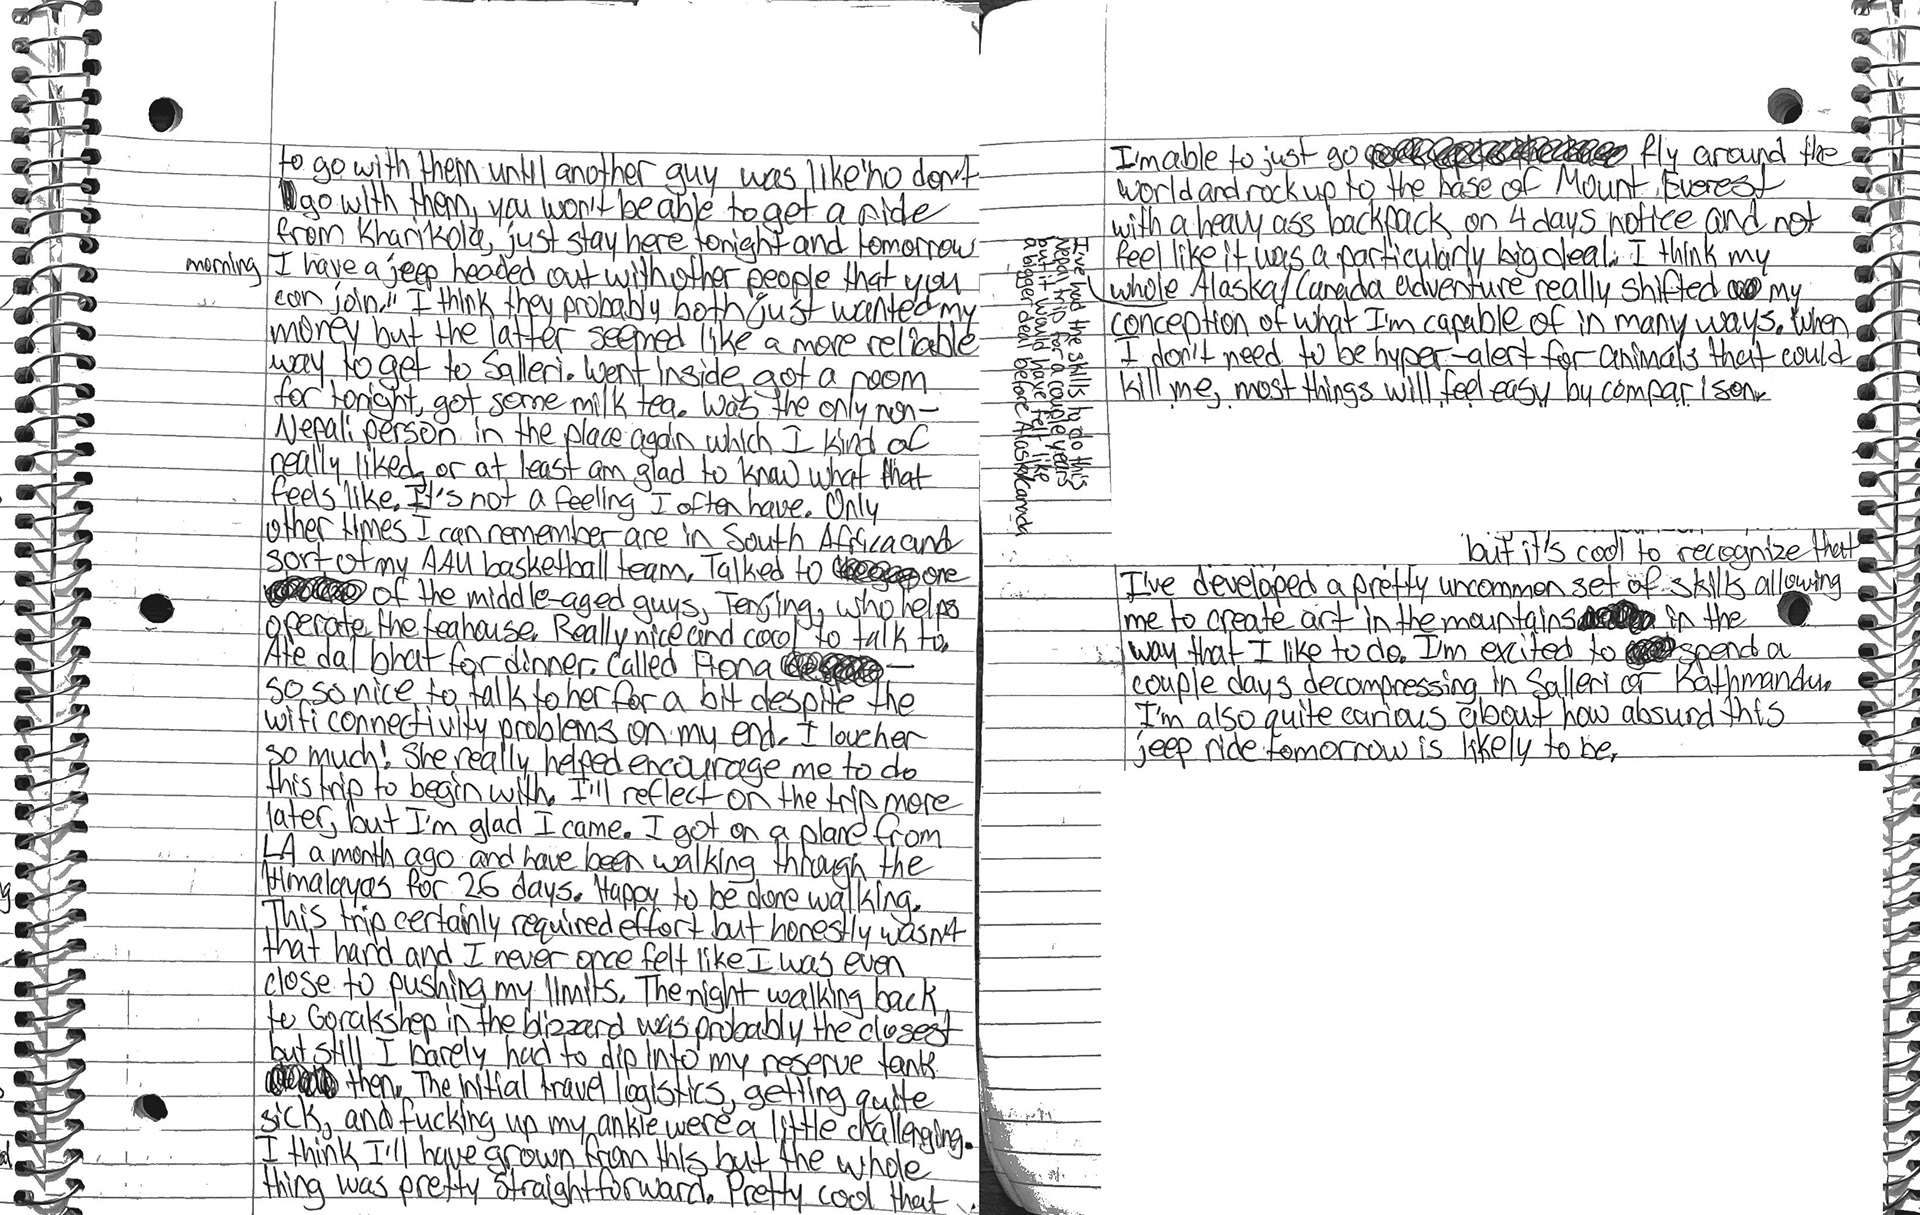 to go with them until another guy was like "no don't
go with them, you won't be able to get a ride
from Kharikola, just stay here tonight and tomorrow
morning I have a jeep headed out with other people that you
can join." I think they probably both just wanted my
money but the latter seemed like a more reliable
way to get to Salleri. Went inside, got a room
for tonight, got some milk tea. Was the only non-
Nepali person in the place again which I kind of
really liked, or at least am glad to know what that
feels like. It's not a feeling I often have. Only
other times I can remember are in South Africa and
sort of my AAU basketball team. Talked to one
of the middle-aged guys, Tenjing, who helps
operate the teahouse. Really nice and cool to talk to.
Ate dal bhat for dinner. Called Fiona —
so so nice to talk to her for a bit despite the
wifi connectivity problems on my end. I love her
so much! She really helped encourage me to do
this trip to begin with. I'll reflect on the trip more
later, but I'm glad I came. I got on a plane from
LA a month ago and have been walking through the
Himalayas for 26 days. Happy to be done walking.
This trip certainly required effort but honestly wasn't
that hard and I never once felt like I was even
close to pushing my limits. The night walking back
to Gorakshep in the blizzard was probably the closest
but still I barely had to dip into my reserve tank
then. The initial travel logistics, getting quite
sick, and fucking up my ankle were a little challenging.
I think I'll have grown from this but the whole
thing was pretty straightforward. Pretty cool that
I'm able to just go fly around the
world and rock up to the base of Mount Everest
with a heavy ass backpack on 4 days notice and not
feel like it was a particularly big deal. I think my
whole Alaska/Canada adventure really shifted my
conception of what I'm capable of in many ways. When
I don't need to be hyper-alert for animals that could
kill me, most things will feel easy by comparison.
I've had the skills to do this
Nepal trip for a couple years
but it would have felt like
a bigger deal before Alaska/Canada
but it's cool to recognize that
I've developed a pretty uncommon set of skills allowing
me to create art in the mountains in the
way that I like to do. I'm excited to spend a
couple days decompressing in Salleri or Kathmandu.
I'm also quite curious about how absurd this
jeep ride tomorrow is likely to be.